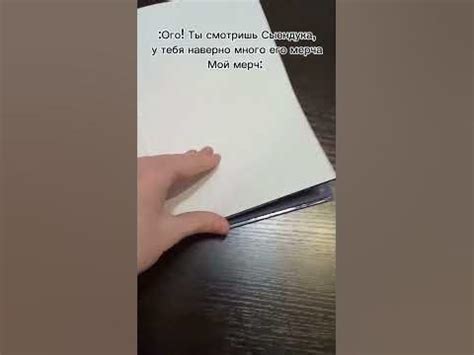 :Ого! Ты смотришь Сыендука,
у тебя наверно много его мерча
Мой мерч: